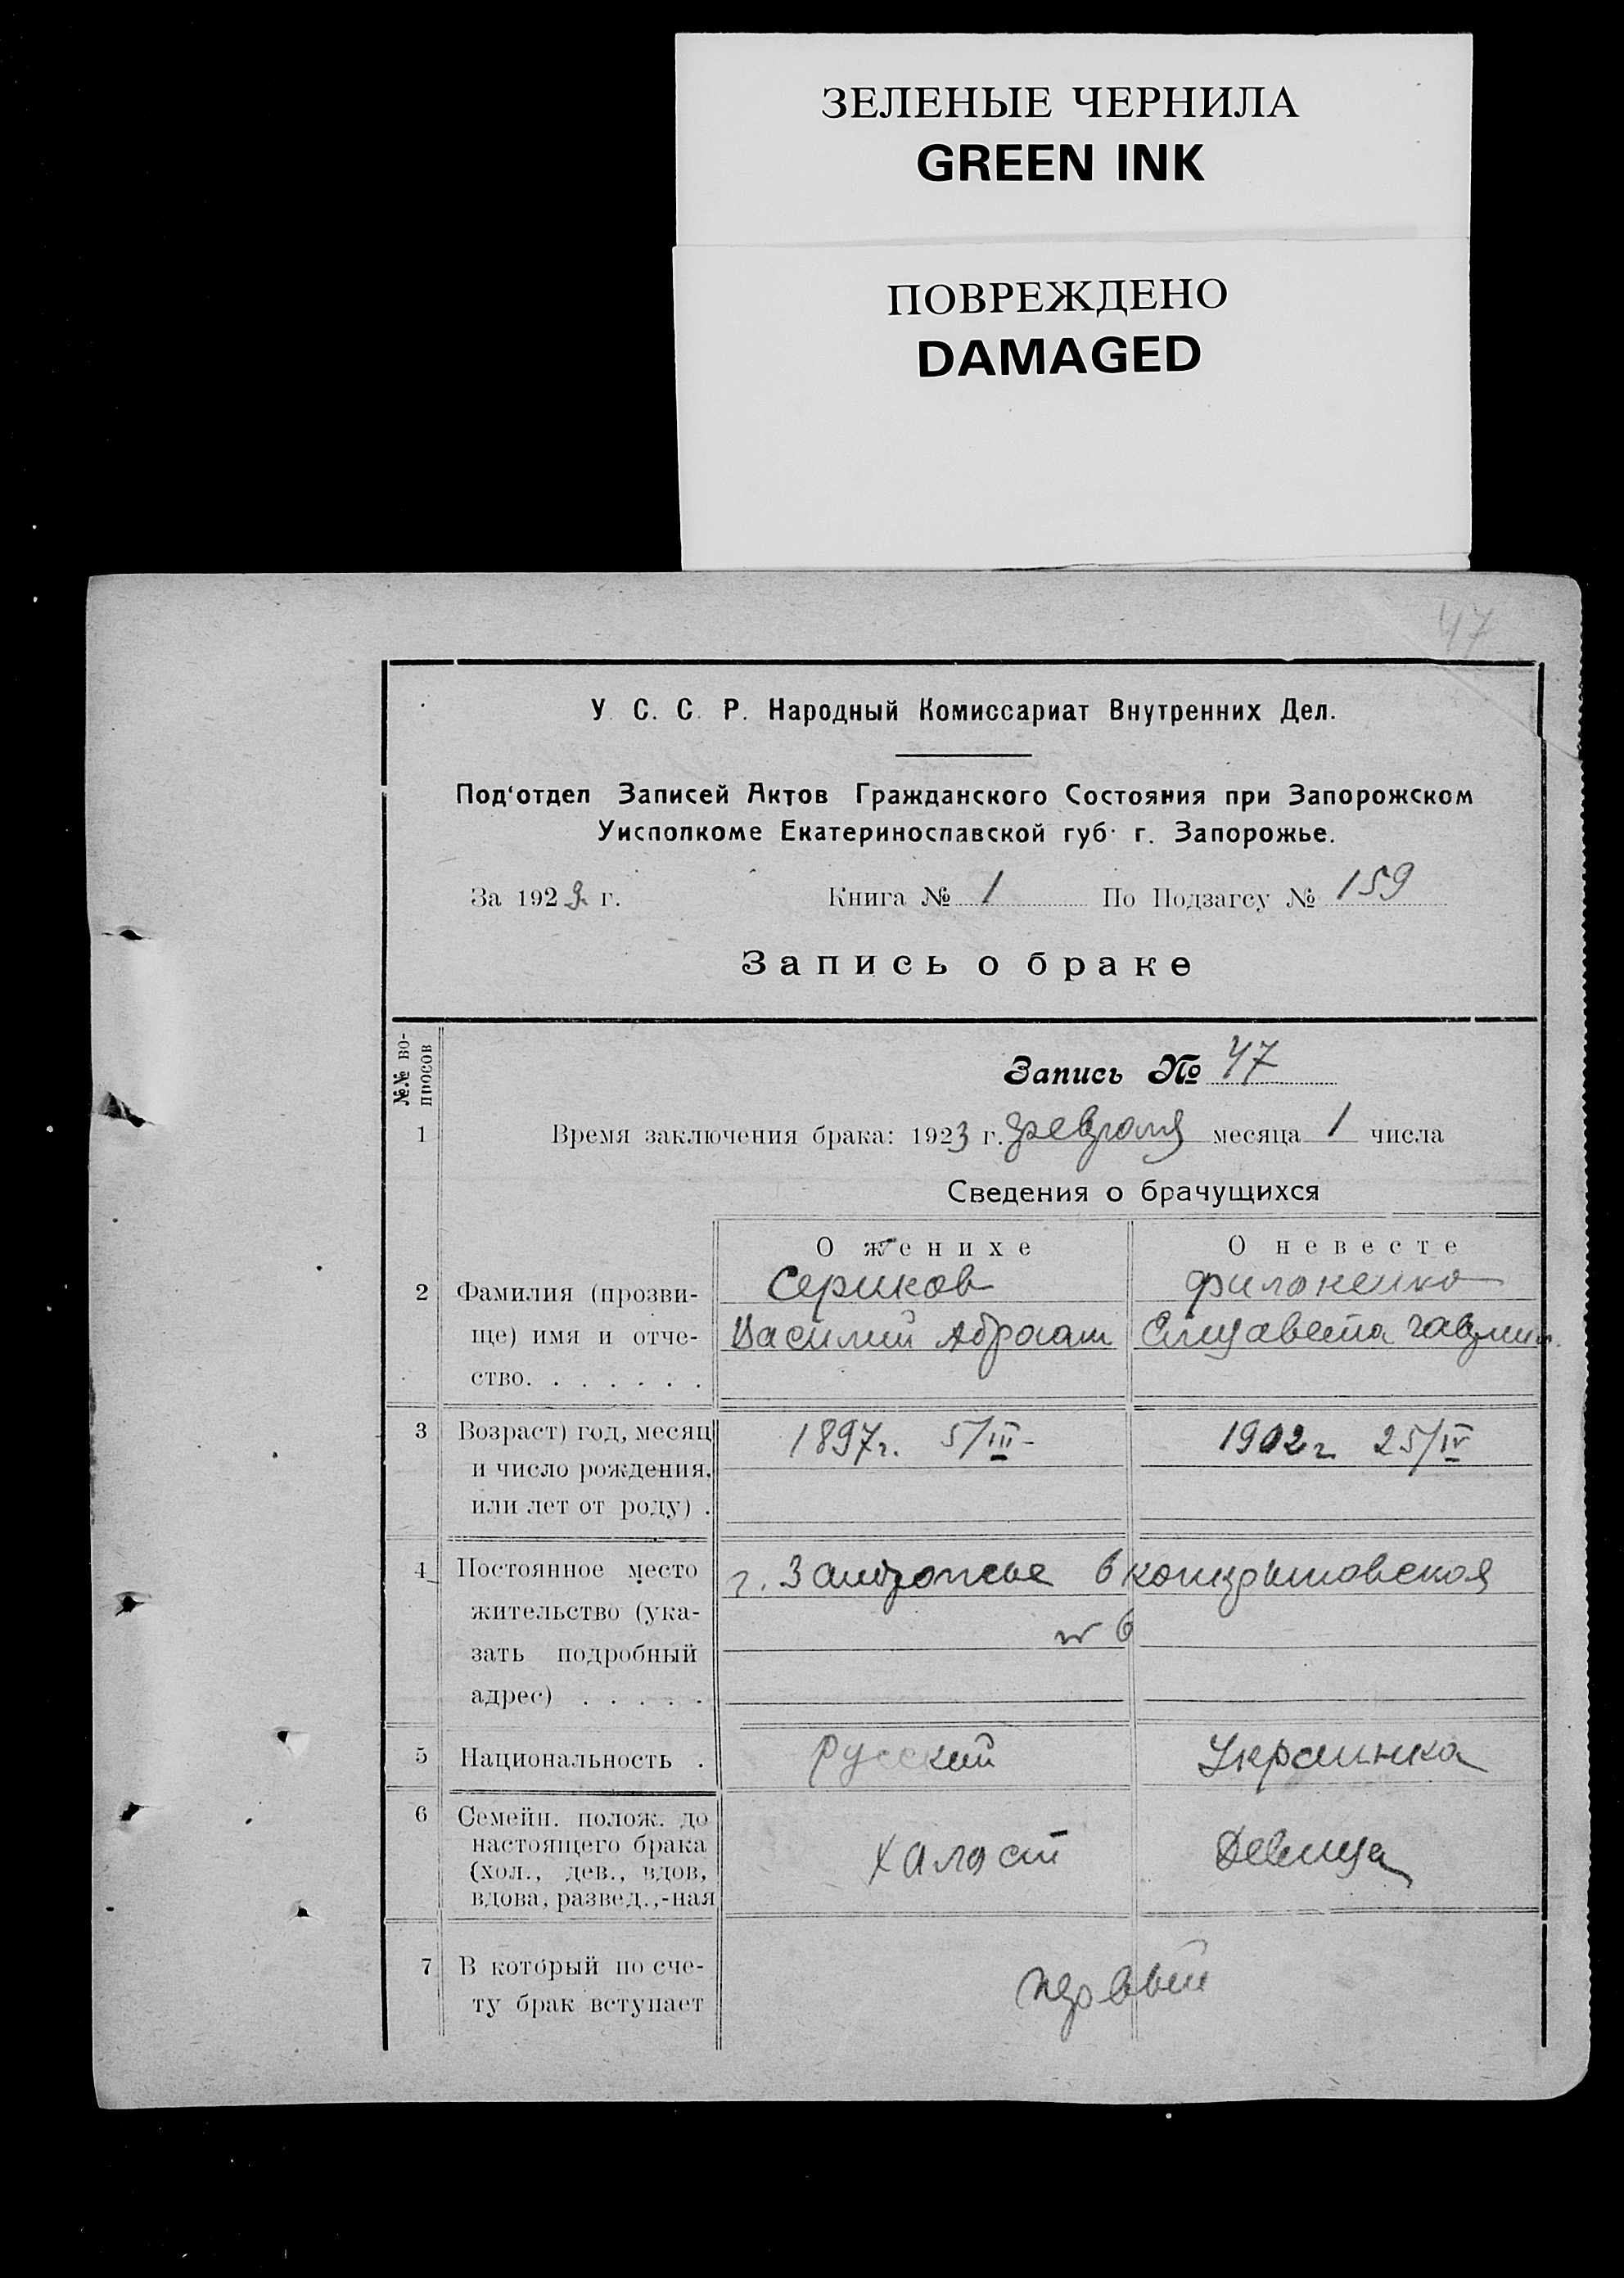 ЗЕЛЕНЫЕ ЧЕРНИЛА
GREEN INK
ПОВРЕЖДЕНО
DAMAGED
47
У. С. С. Р. Народный Комиссариат Внутренних Дел.
Под'отдел Записей Актов Гражданского Состояния при Запорожском
Уисполкоме Екатеринославской губ. г. Запорожье.
За 1923 г. Книга № 1 По Подзагсу № 159
Запись о браке
№№ во-
просов
Запись № 47
1 Время заключения брака: 1923 г. февраля месяца 1 числа
Сведения о брачущихся
О женихе О невесте
2 Фамилия (прозви- Сериков Филоненко
ще) имя и отче- Василий Абрам Елизавета
ство. . . . . . .
3 Возраст) год, месяц 1897 г. 5/III - 1902 г 25/IV
и число рождения.
или лет от роду) .
4 Постоянное место г. Запорожье
жительство (ука- № 6
зать подробный
адрес) . . . . .
5 Национальность . Русский Украинка
6 Семейн. полож. до
настоящего брака
(хол., дев., вдов, Халост Девица
вдова, развед.,-ная
7 В который по сче- первый
ту брак вступает